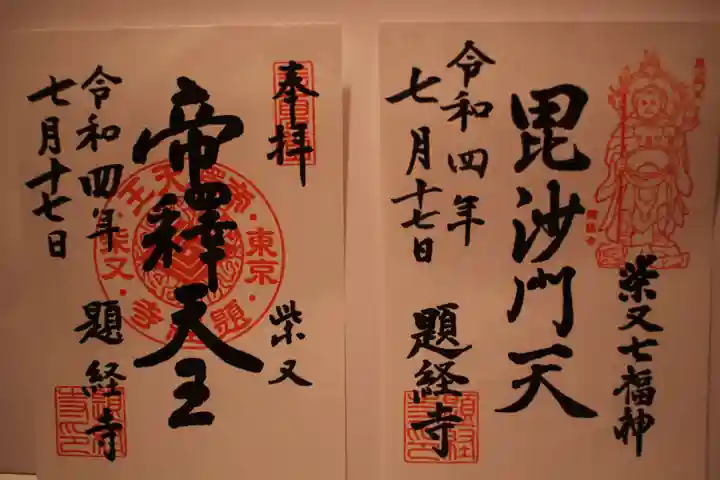 毘沙門天
柴又七福神
令和四年
七月十七日
題経寺
奉拝
柴又
帝釋天王
帝釋天王
東京
柴又
題経寺
令和四年
七月十七日
題経寺